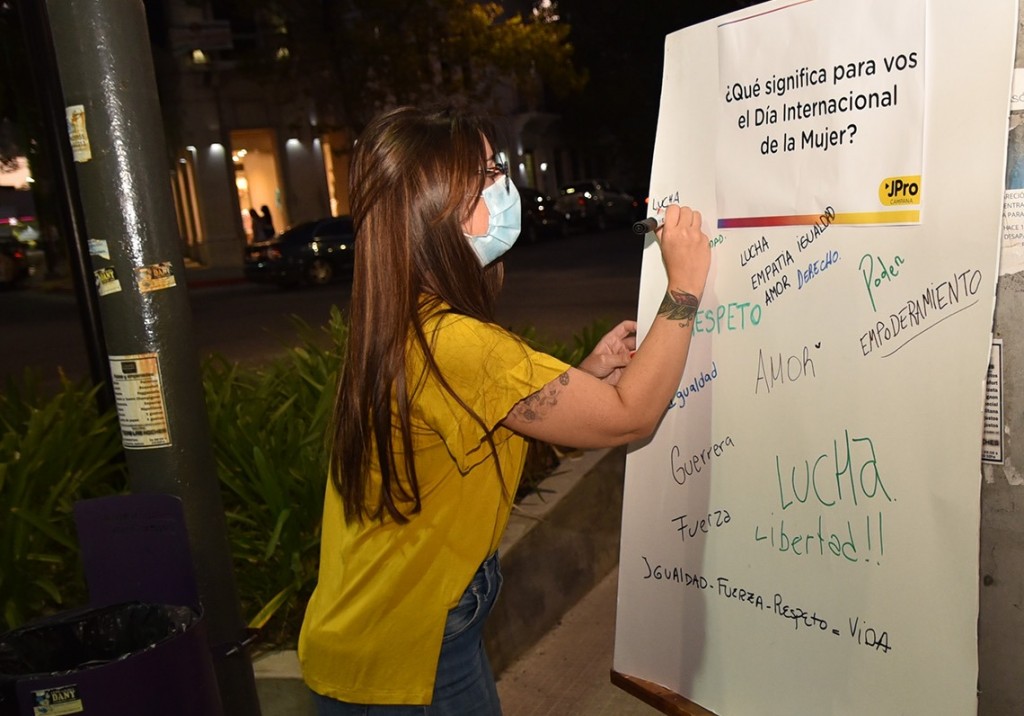 ¿Qué significa para vos
el Día Internacional
de la Mujer?
JPro
CAMPANA
LUCHA
LUCHA
EMPATIA IGUALDAD
AMOR DERECHO.
Poder
ESPETO
EMPODERAMIENTO
AMOR
Igualdad
Guerrera
LUCHA.
Fuerza
Libertad!!
IGUALDAD-FUERZA-RESPETO=VIDA
DANY